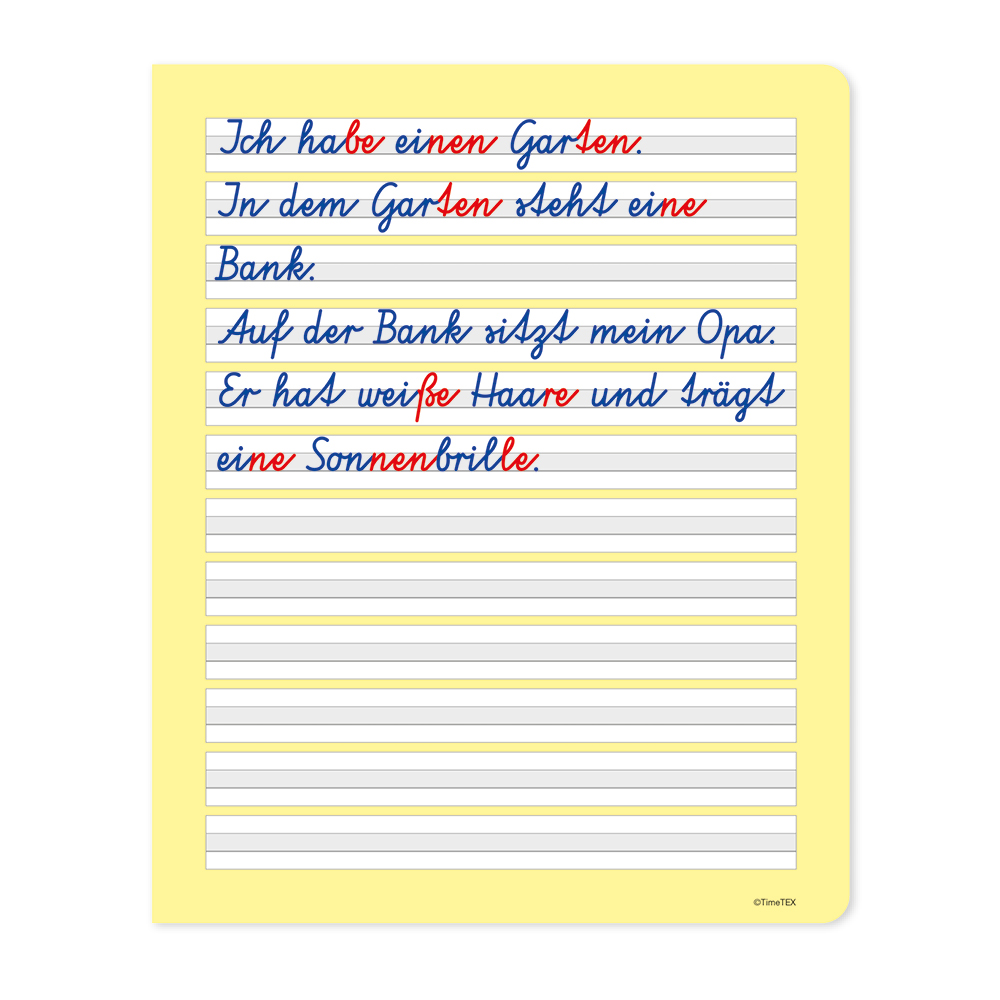 Ich habe einen Garten.
In dem Garten steht eine
Bank.
Auf der Bank sitzt mein Opa.
Er hat weiße Haare und trägt
eine Sonnenbrille.
©TimeTEX